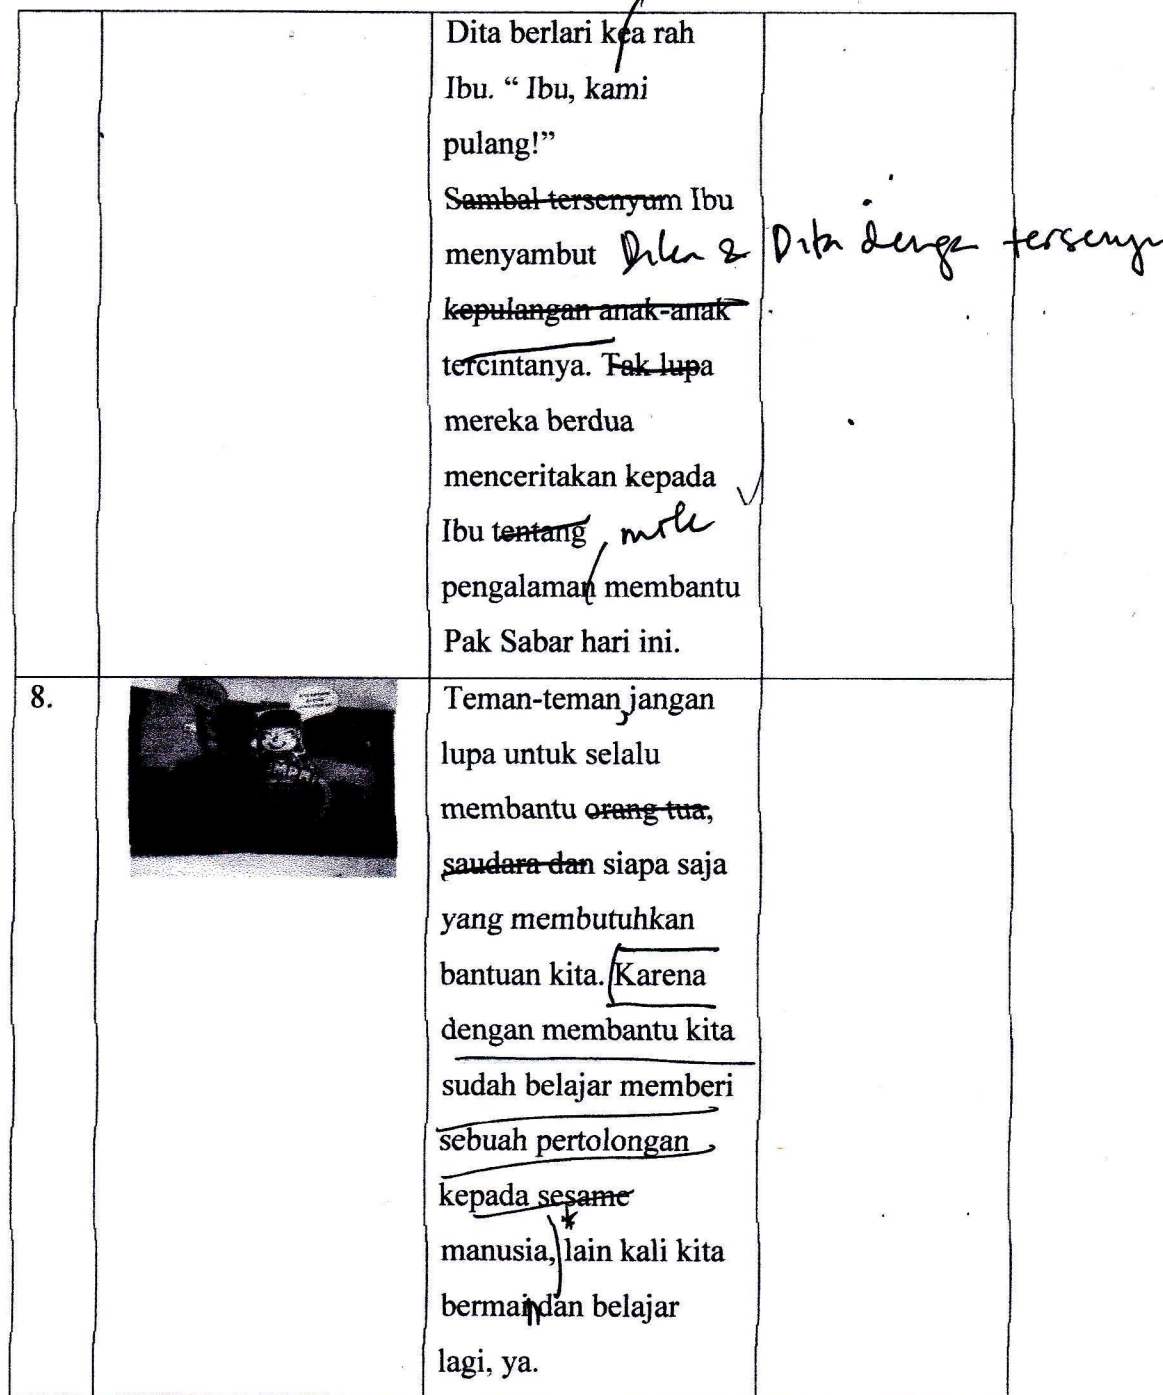 Dita berlari kea rah
Ibu. “ Ibu, kami
pulang!”
Sambal tersenyum Ibu
menyambut & Dita tersenyu
kepulangan anak-anak
tercintanya. Tak lupa
mereka berdua
menceritakan kepada
Ibu tentang
pengalaman membantu
Pak Sabar hari ini.
8.
Teman-teman, jangan
lupa untuk selalu
membantu orang tua,
saudara dan siapa saja
yang membutuhkan
bantuan kita. Karena
dengan membantu kita
sudah belajar memberi
sebuah pertolongan
kepada sesame
manusia, lain kali kita
bermain dan belajar
lagi, ya.